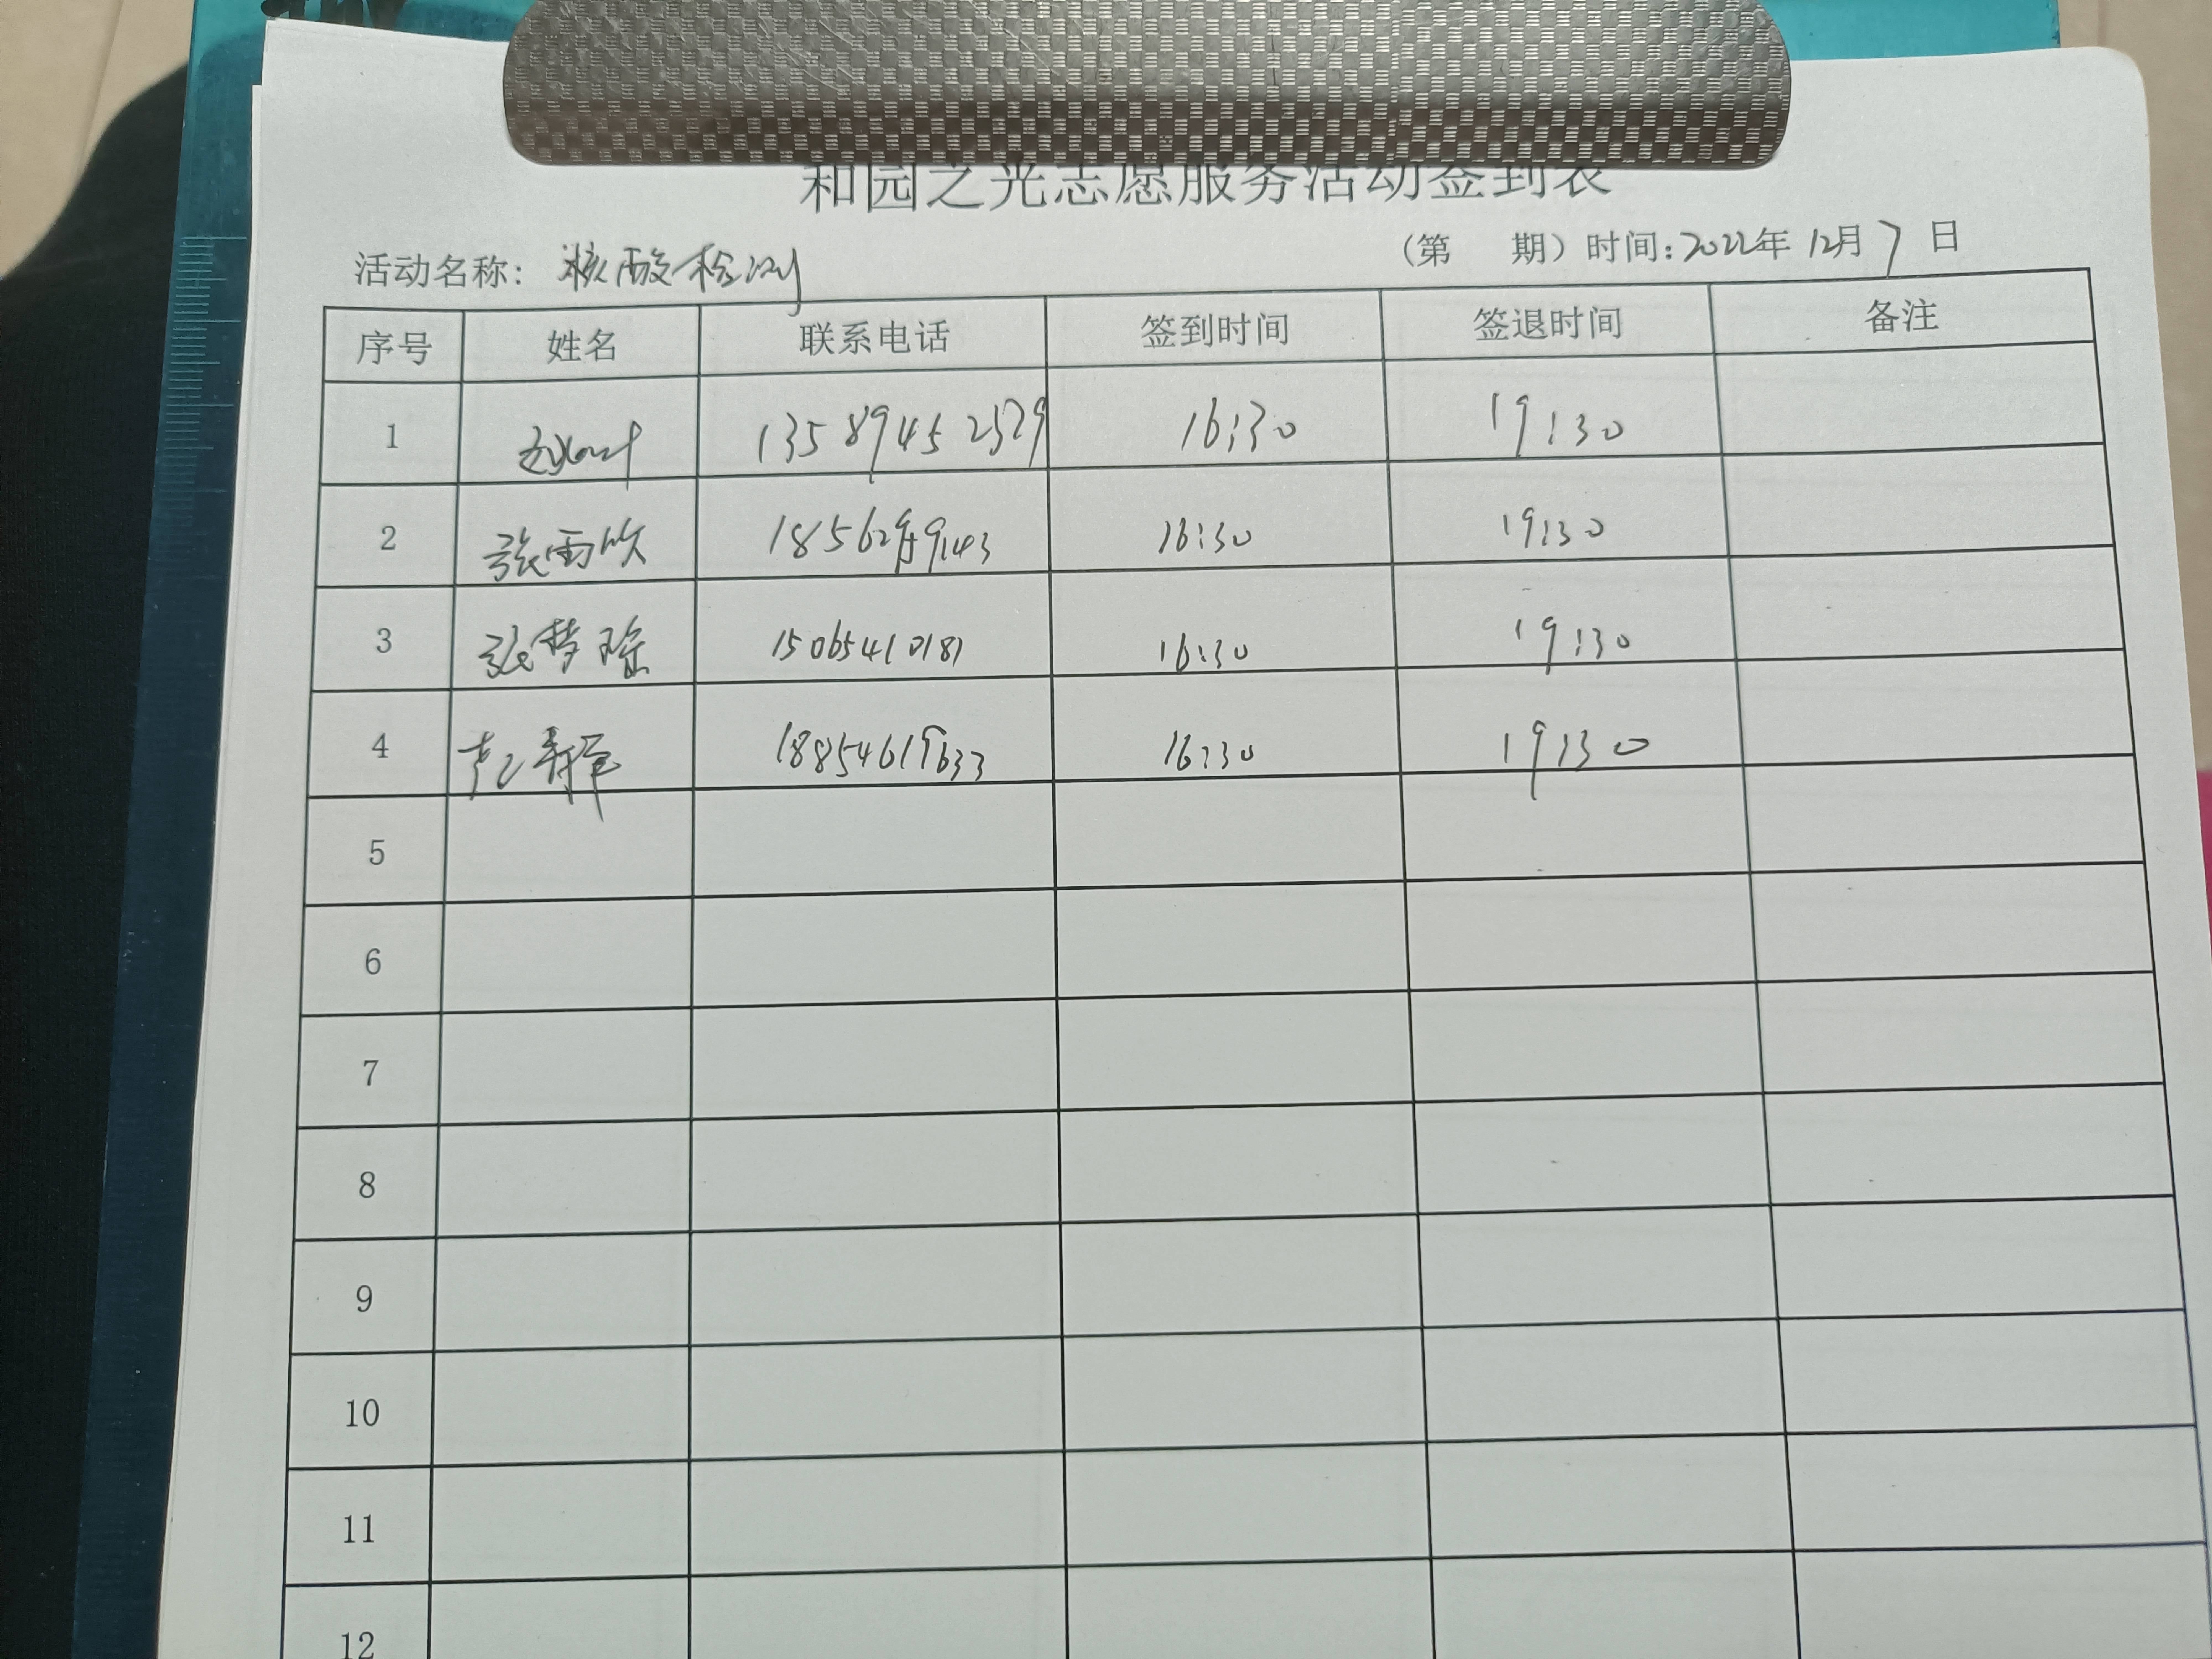 和园之光志愿服务活动签到表
活动名称: 核酸检测 (第 期) 时间: 2022年 12月 7 日
序号 姓名 联系电话 签到时间 签退时间 备注
1 13589452529 16:30 19:30
2 张雨欣 16:30 19:30
3 张梦瑶 15065410181 16:30 19:30
4 16:30 19:30
5
6
7
8
9
10
11
12